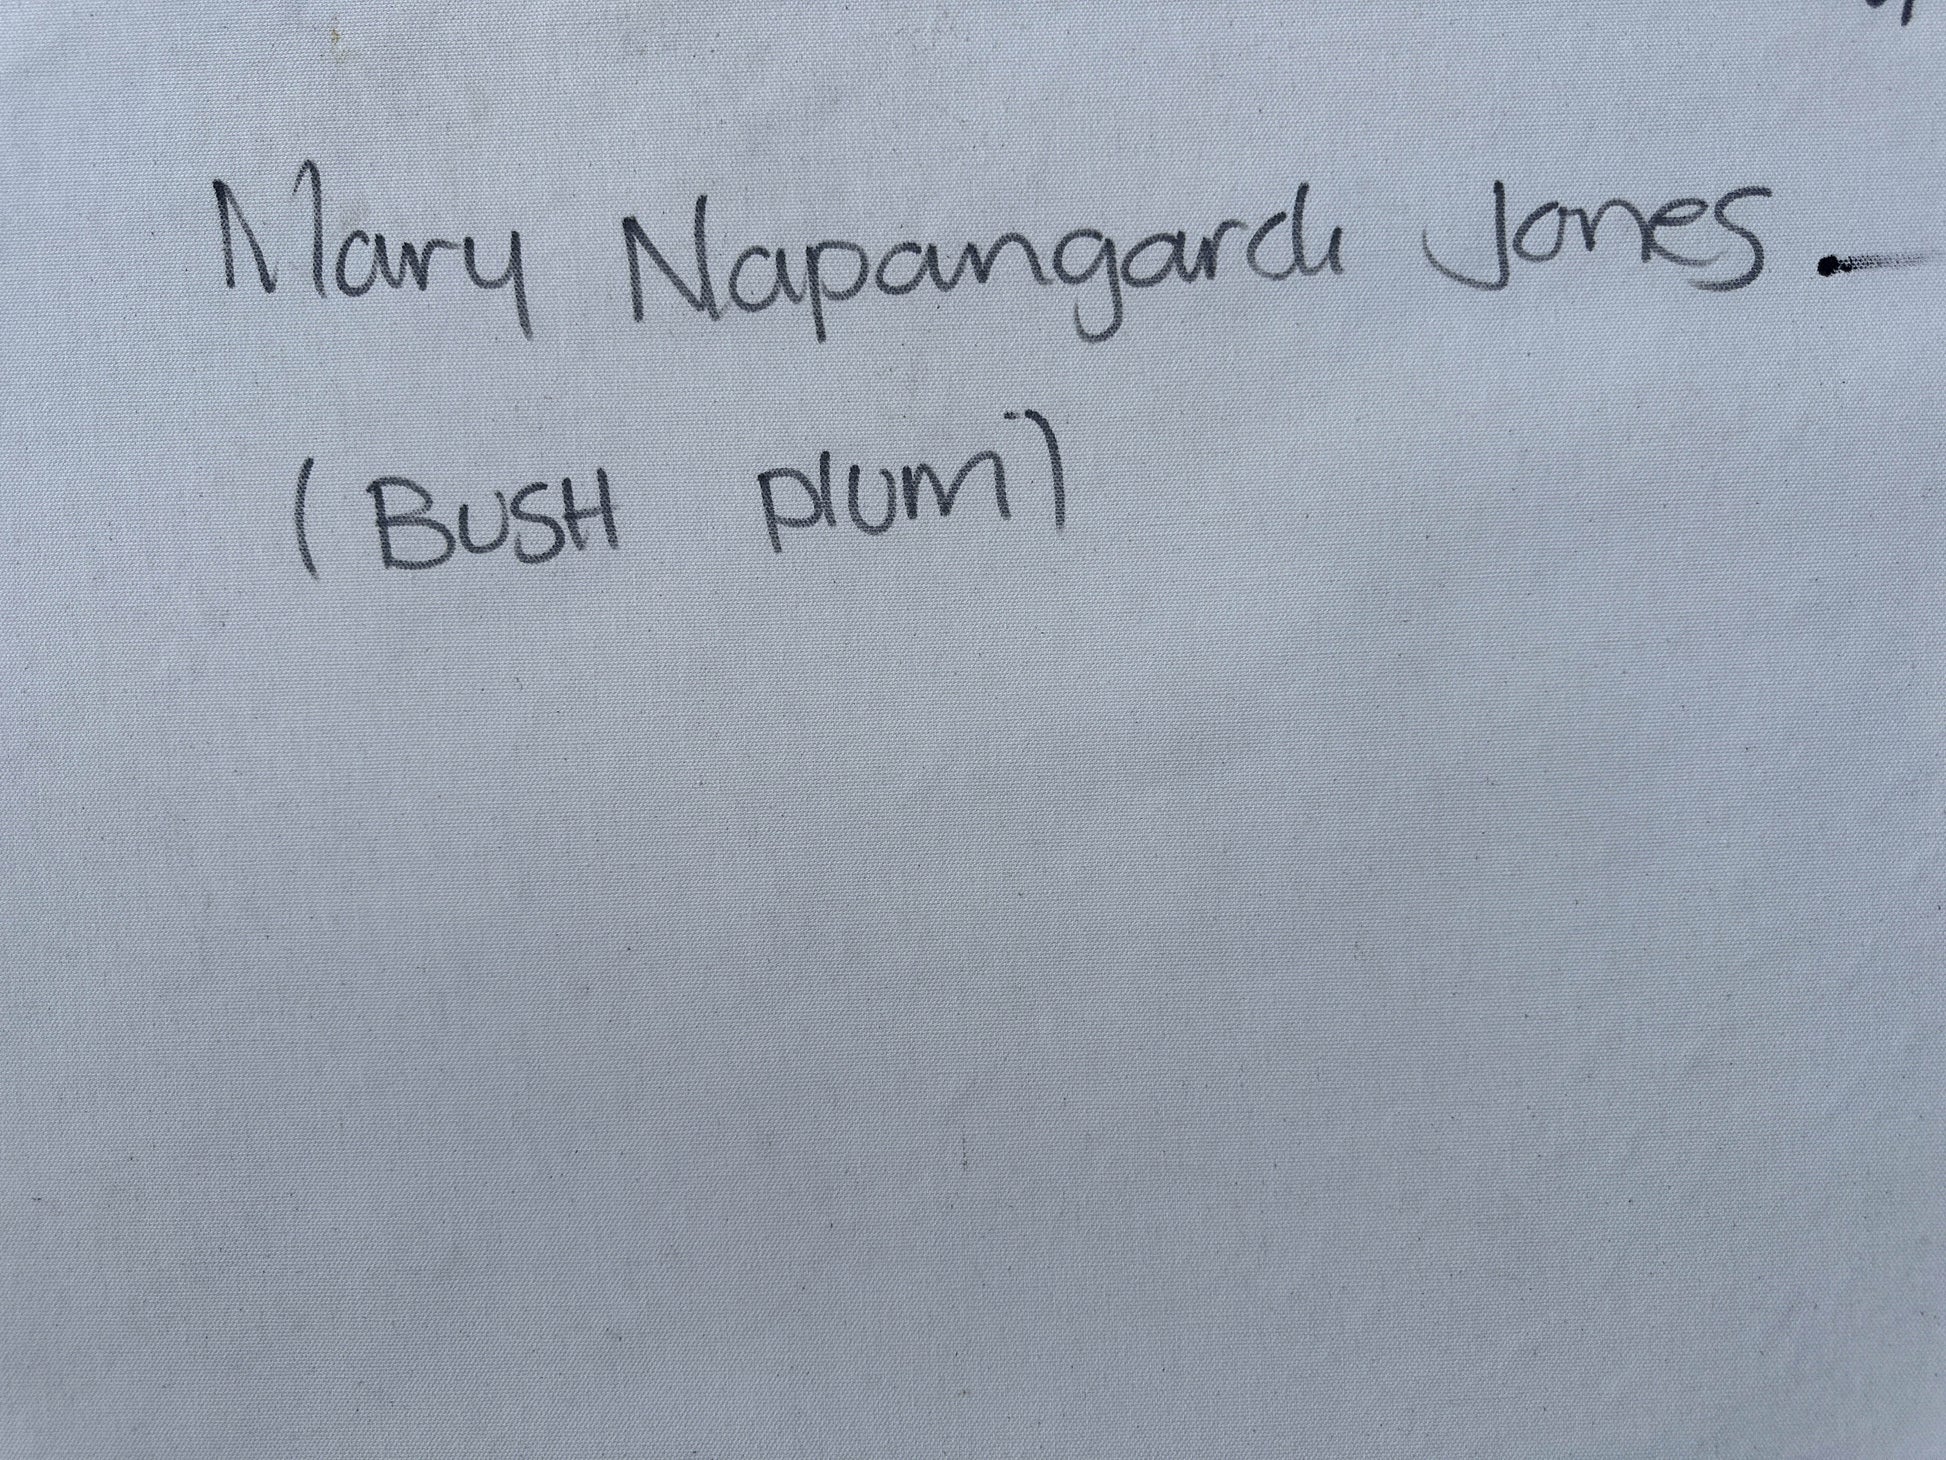 Mary Napangardi Jones
(BUSH plum)